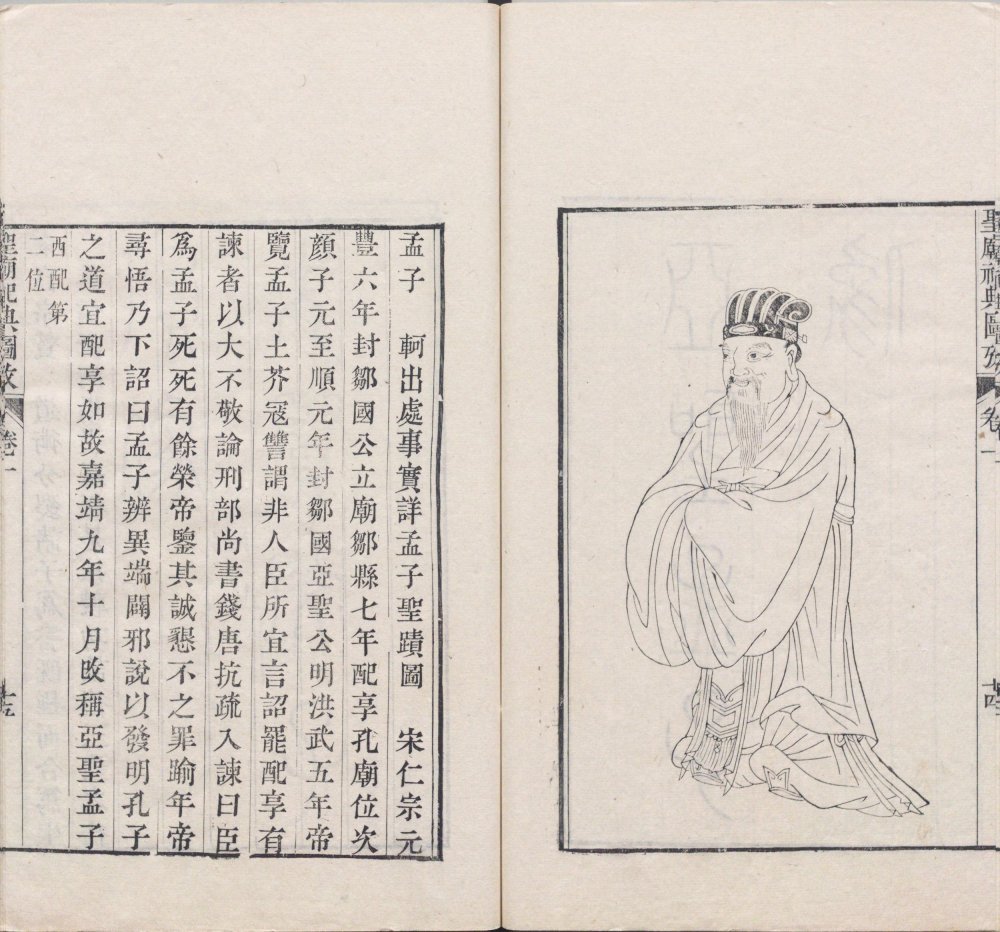 聖廟祀典圖攷
卷一
十四
孟子　軻出處事實詳孟子聖蹟圖　宋仁宗元
豐六年封鄒國公立廟鄒縣七年配享孔廟位次
顏子元至順元年封鄒國亞聖公明洪武五年帝
覽孟子土芥寇讐謂非人臣所宜言詔罷配享有
諫者以大不敬論刑部尚書錢唐抗疏入諫曰臣
爲孟子死死有餘榮帝鑒其誠懇不之罪踰年帝
尋悟乃下詔曰孟子辨異端闢邪說以發明孔子
之道宜配享如故嘉靖九年十月改稱亞聖孟子
西配第
二位
聖廟祀典圖攷
卷一
十五